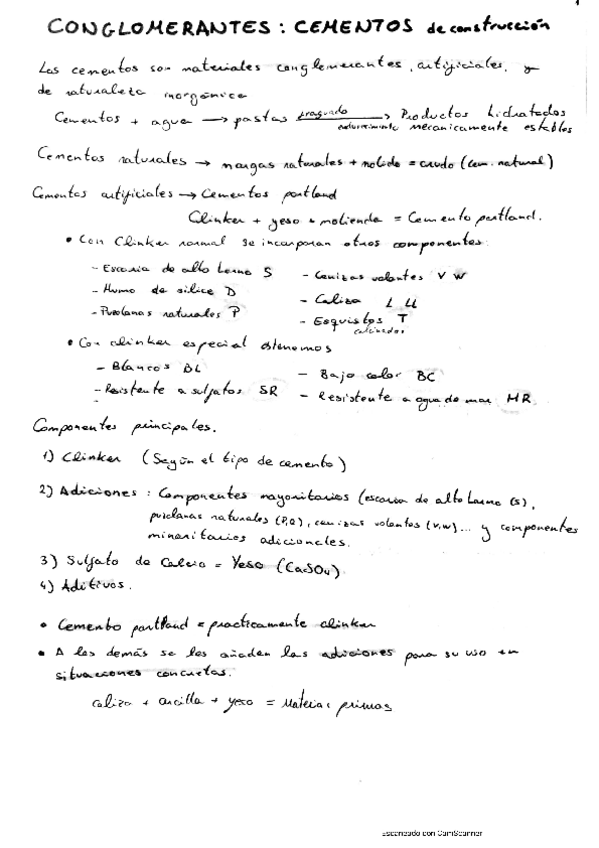 1
CONGLOMERANTES : CEMENTOS de construcción
Los cementos son materiales conglomerantes, artificiales, y
de naturaleza inorgánica
Cementos + agua → pastas fraguado endurecimiento → Productos hidratados mecanicamente estables
Cementos naturales → margas naturales + molido = crudo (cem. natural)
Cementos artificiales → Cementos portland
Clinker + yeso + molienda = Cemento portland.
• Con Clinker normal se incorporan otros componentes:
- Escoria de alto horno S - Cenizas volantes V W
- Humo de sílice D - Caliza L LL
- Puzolanas naturales P - Esquistos T
calcinados
• Con clinker especial obtenemos
- Blancos BL - Bajo calor BC
- Resistente a sulfatos SR - Resistente a agua de mar MR
Componentes principales.
1) Clinker (Según el tipo de cemento)
2) Adiciones : Componentes mayoritarios (escoria de alto horno (s),
puzolanas naturales (P,Q), cenizas volantes (V,W)... y componentes
minoritarios adicionales.
3) Sulfato de Calcio = Yeso (CaSO4)
4) Aditivos.
• Cemento portland = practicamente clinker
• A los demás se les añaden las adiciones para su uso en
situaciones concretas.
caliza + arcilla + yeso = Materias primas
Escaneado con CamScanner